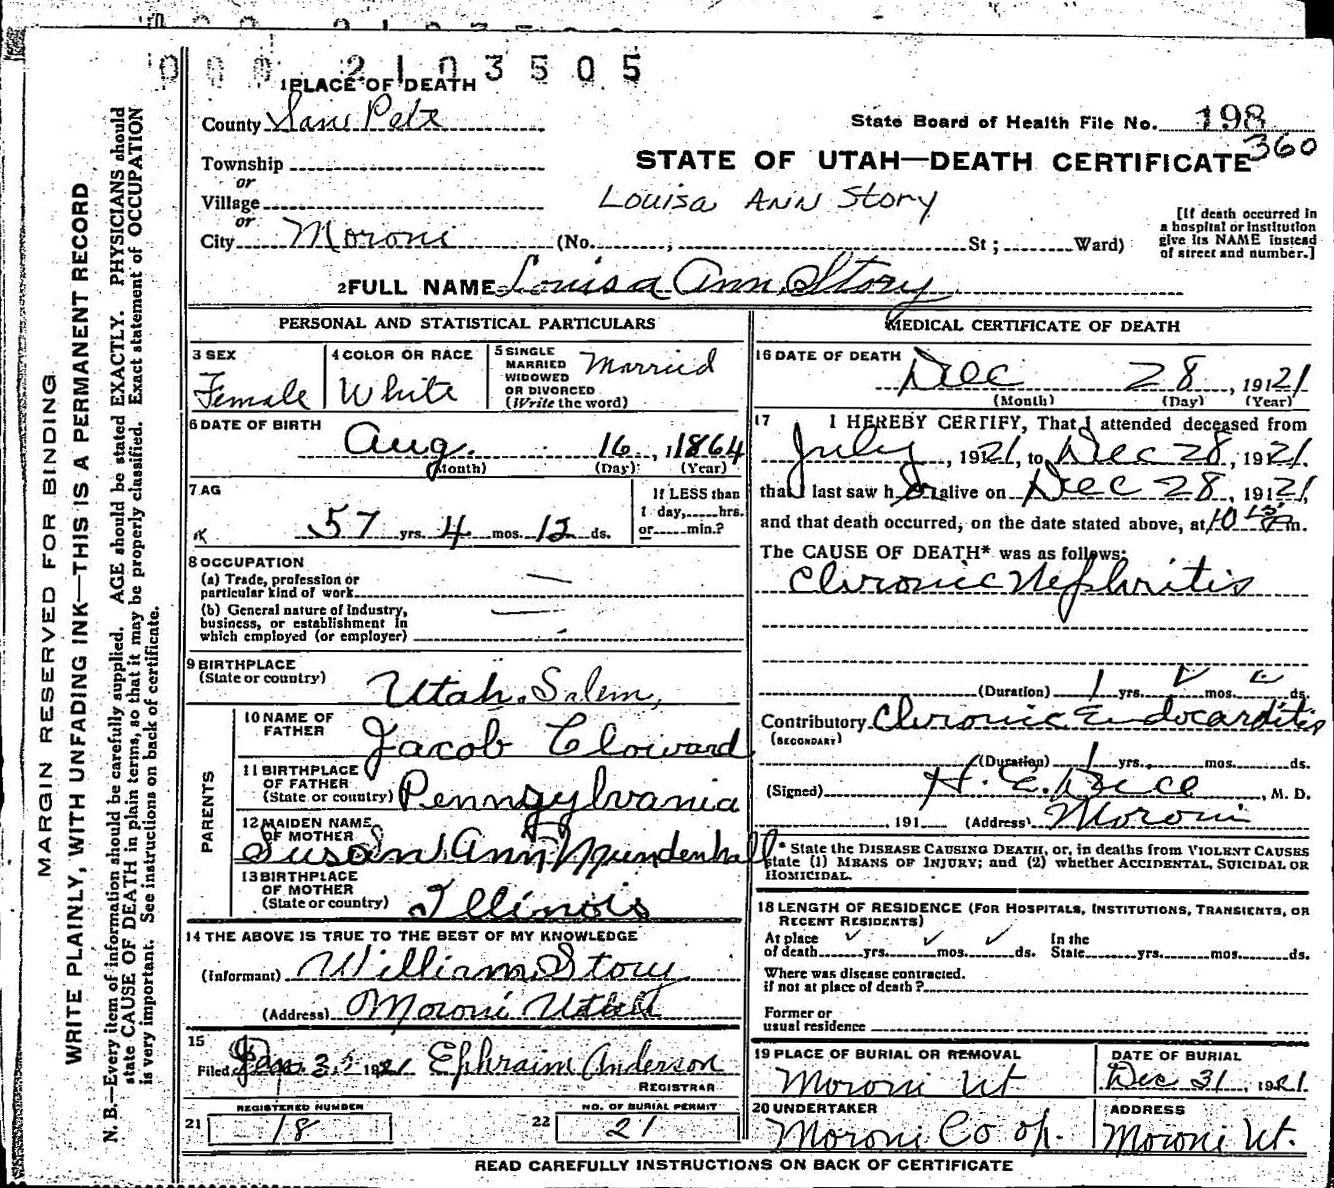 000 2103505
1 PLACE OF DEATH
County San Pete
State Board of Health File No. 198
360
Township
STATE OF UTAH—DEATH CERTIFICATE
or
Village
Louisa Ann Story
or
City Moroni (No. ; St ; Ward)
[If death occurred in
a hospital or institution
give its NAME instead
of street and number.]
2 FULL NAME Louisa Ann Story
MARGIN RESERVED FOR BINDING
WRITE PLAINLY, WITH UNFADING INK—THIS IS A PERMANENT RECORD
N. B.—Every item of information should be carefully supplied. AGE should be stated EXACTLY. PHYSICIANS should
state CAUSE OF DEATH in plain terms, so that it may be properly classified. Exact statement of OCCUPATION
is very important. See instructions on back of certificate.
PERSONAL AND STATISTICAL PARTICULARS
3 SEX
Female
4 COLOR OR RACE
White
5 SINGLE
MARRIED
WIDOWED
OR DIVORCED
(Write the word)
Married
6 DATE OF BIRTH
Aug. 16, 1864
(Month) (Day) (Year)
7 AG
57 yrs. 4 mos. 12 ds.
If LESS than
1 day, hrs.
or min.?
8 OCCUPATION
(a) Trade, profession or
particular kind of work —
(b) General nature of industry,
business, or establishment in
which employed (or employer) —
9 BIRTHPLACE
(State or country)
Utah. Salem,
PARENTS
10 NAME OF
FATHER
Jacob Cloward
11 BIRTHPLACE
OF FATHER
(State or country) Pennsylvania
12 MAIDEN NAME
OF MOTHER
Susan Ann Mundenhall
13 BIRTHPLACE
OF MOTHER
(State or country) Illinois
14 THE ABOVE IS TRUE TO THE BEST OF MY KNOWLEDGE
(Informant) William Story
(Address) Moroni Utah
15
Filed Ephraim Anderson
REGISTRAR
21 REGISTERED NUMBER
18
22 NO. OF BURIAL PERMIT
21
MEDICAL CERTIFICATE OF DEATH
16 DATE OF DEATH
Dec 28, 1921
(Month) (Day) (Year)
17 I HEREBY CERTIFY, That I attended deceased from
July, 1921, to Dec 28, 1921.
that I last saw her alive on Dec 28, 1921,
and that death occurred, on the date stated above, at 10 15 m.
The CAUSE OF DEATH* was as follows:
Chronic Nephritis
(Duration) 1 yrs. mos. ds.
Contributory Chronic Endocarditis
(SECONDARY)
(Duration) 1 yrs. mos. ds.
(Signed) H. E. , M. D.
191 (Address) Moroni
* State the DISEASE CAUSING DEATH, or, in deaths from VIOLENT CAUSES
state (1) MEANS OF INJURY; and (2) whether ACCIDENTAL, SUICIDAL OR
HOMICIDAL.
18 LENGTH OF RESIDENCE (FOR HOSPITALS, INSTITUTIONS, TRANSIENTS, OR
RECENT RESIDENTS)
At place
of death yrs. mos. ds.
In the
State yrs. mos. ds.
Where was disease contracted.
if not at place of death?
Former or
usual residence
19 PLACE OF BURIAL OR REMOVAL
Moroni Ut
DATE OF BURIAL
Dec 31, 1921
20 UNDERTAKER
Moroni Co op.
ADDRESS
Moroni Ut.
READ CAREFULLY INSTRUCTIONS ON BACK OF CERTIFICATE